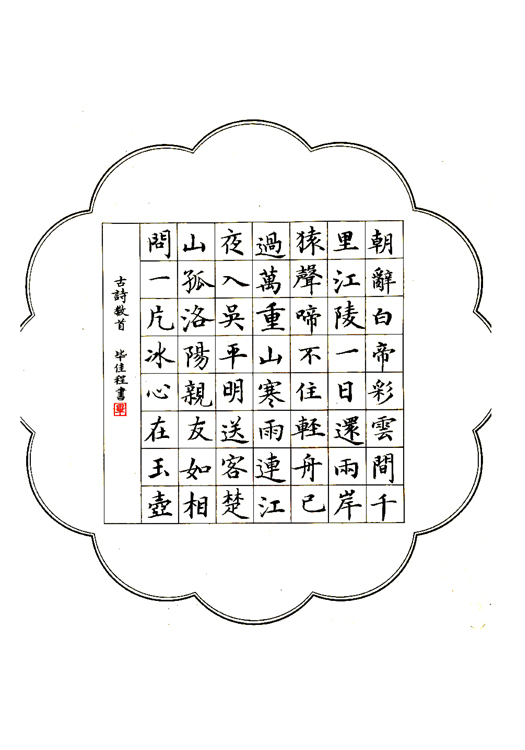 朝辭白帝彩雲間千
里江陵一日還兩岸
猿聲啼不住輕舟已
過萬重山寒雨連江
夜入吳平明送客楚
山孤洛陽親友如相
問一片冰心在玉壺
古詩数首 毕佳程書